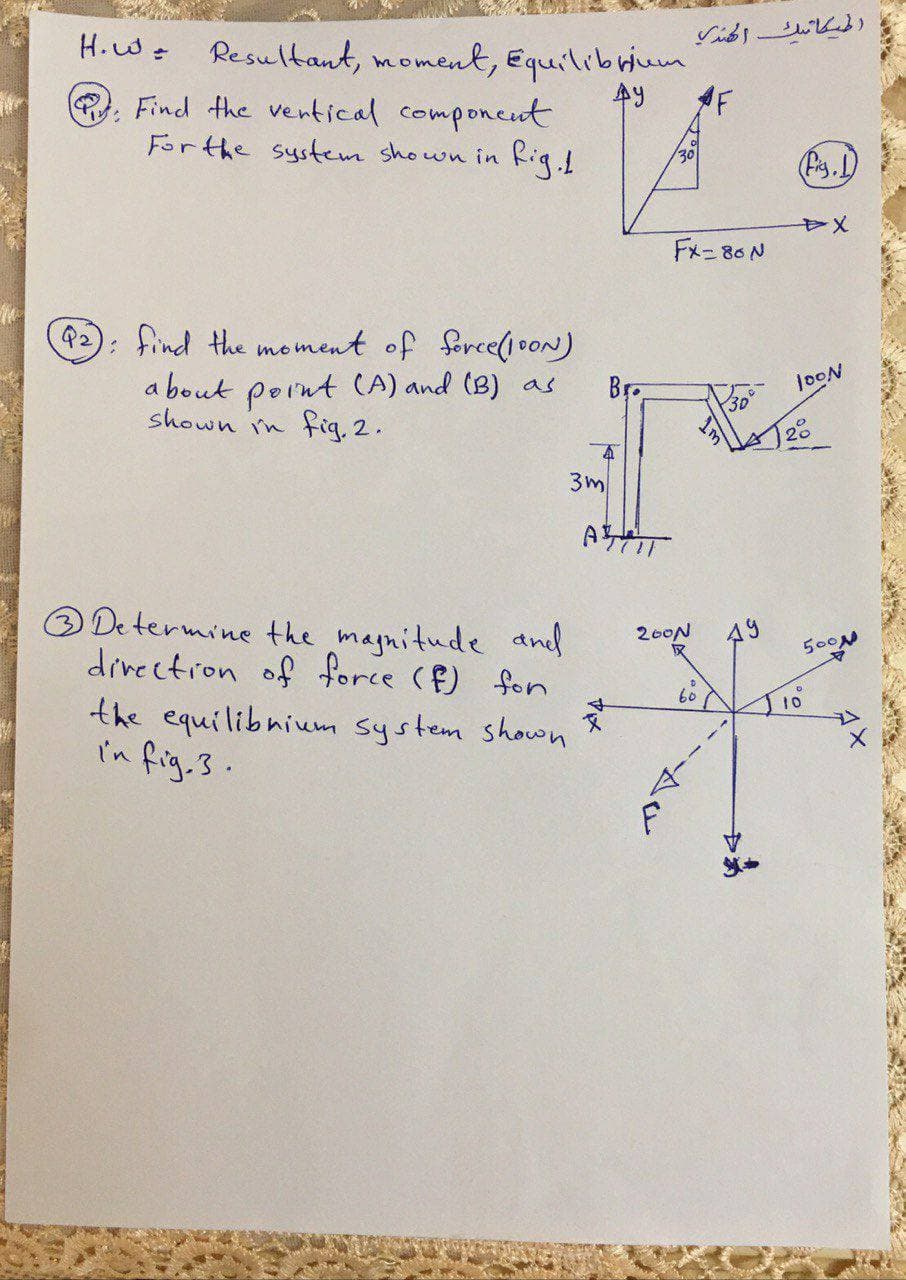 الميكانيك الهندسي
H.W = Resultant, moment, Equilibrium
Q1: Find the vertical component
For the system shown in fig.1
y
F
30°
Fig.1
X
FX=80N
Q2: find the moment of force(100N)
about point (A) and (B) as
shown in fig.2.
B
30°
100N
1m
20
3m
A
③ Determine the magnitude and
direction of force (F) for
the equilibrium system shown
in fig.3.
200N
y
500N
60°
10°
X
X
F
y-